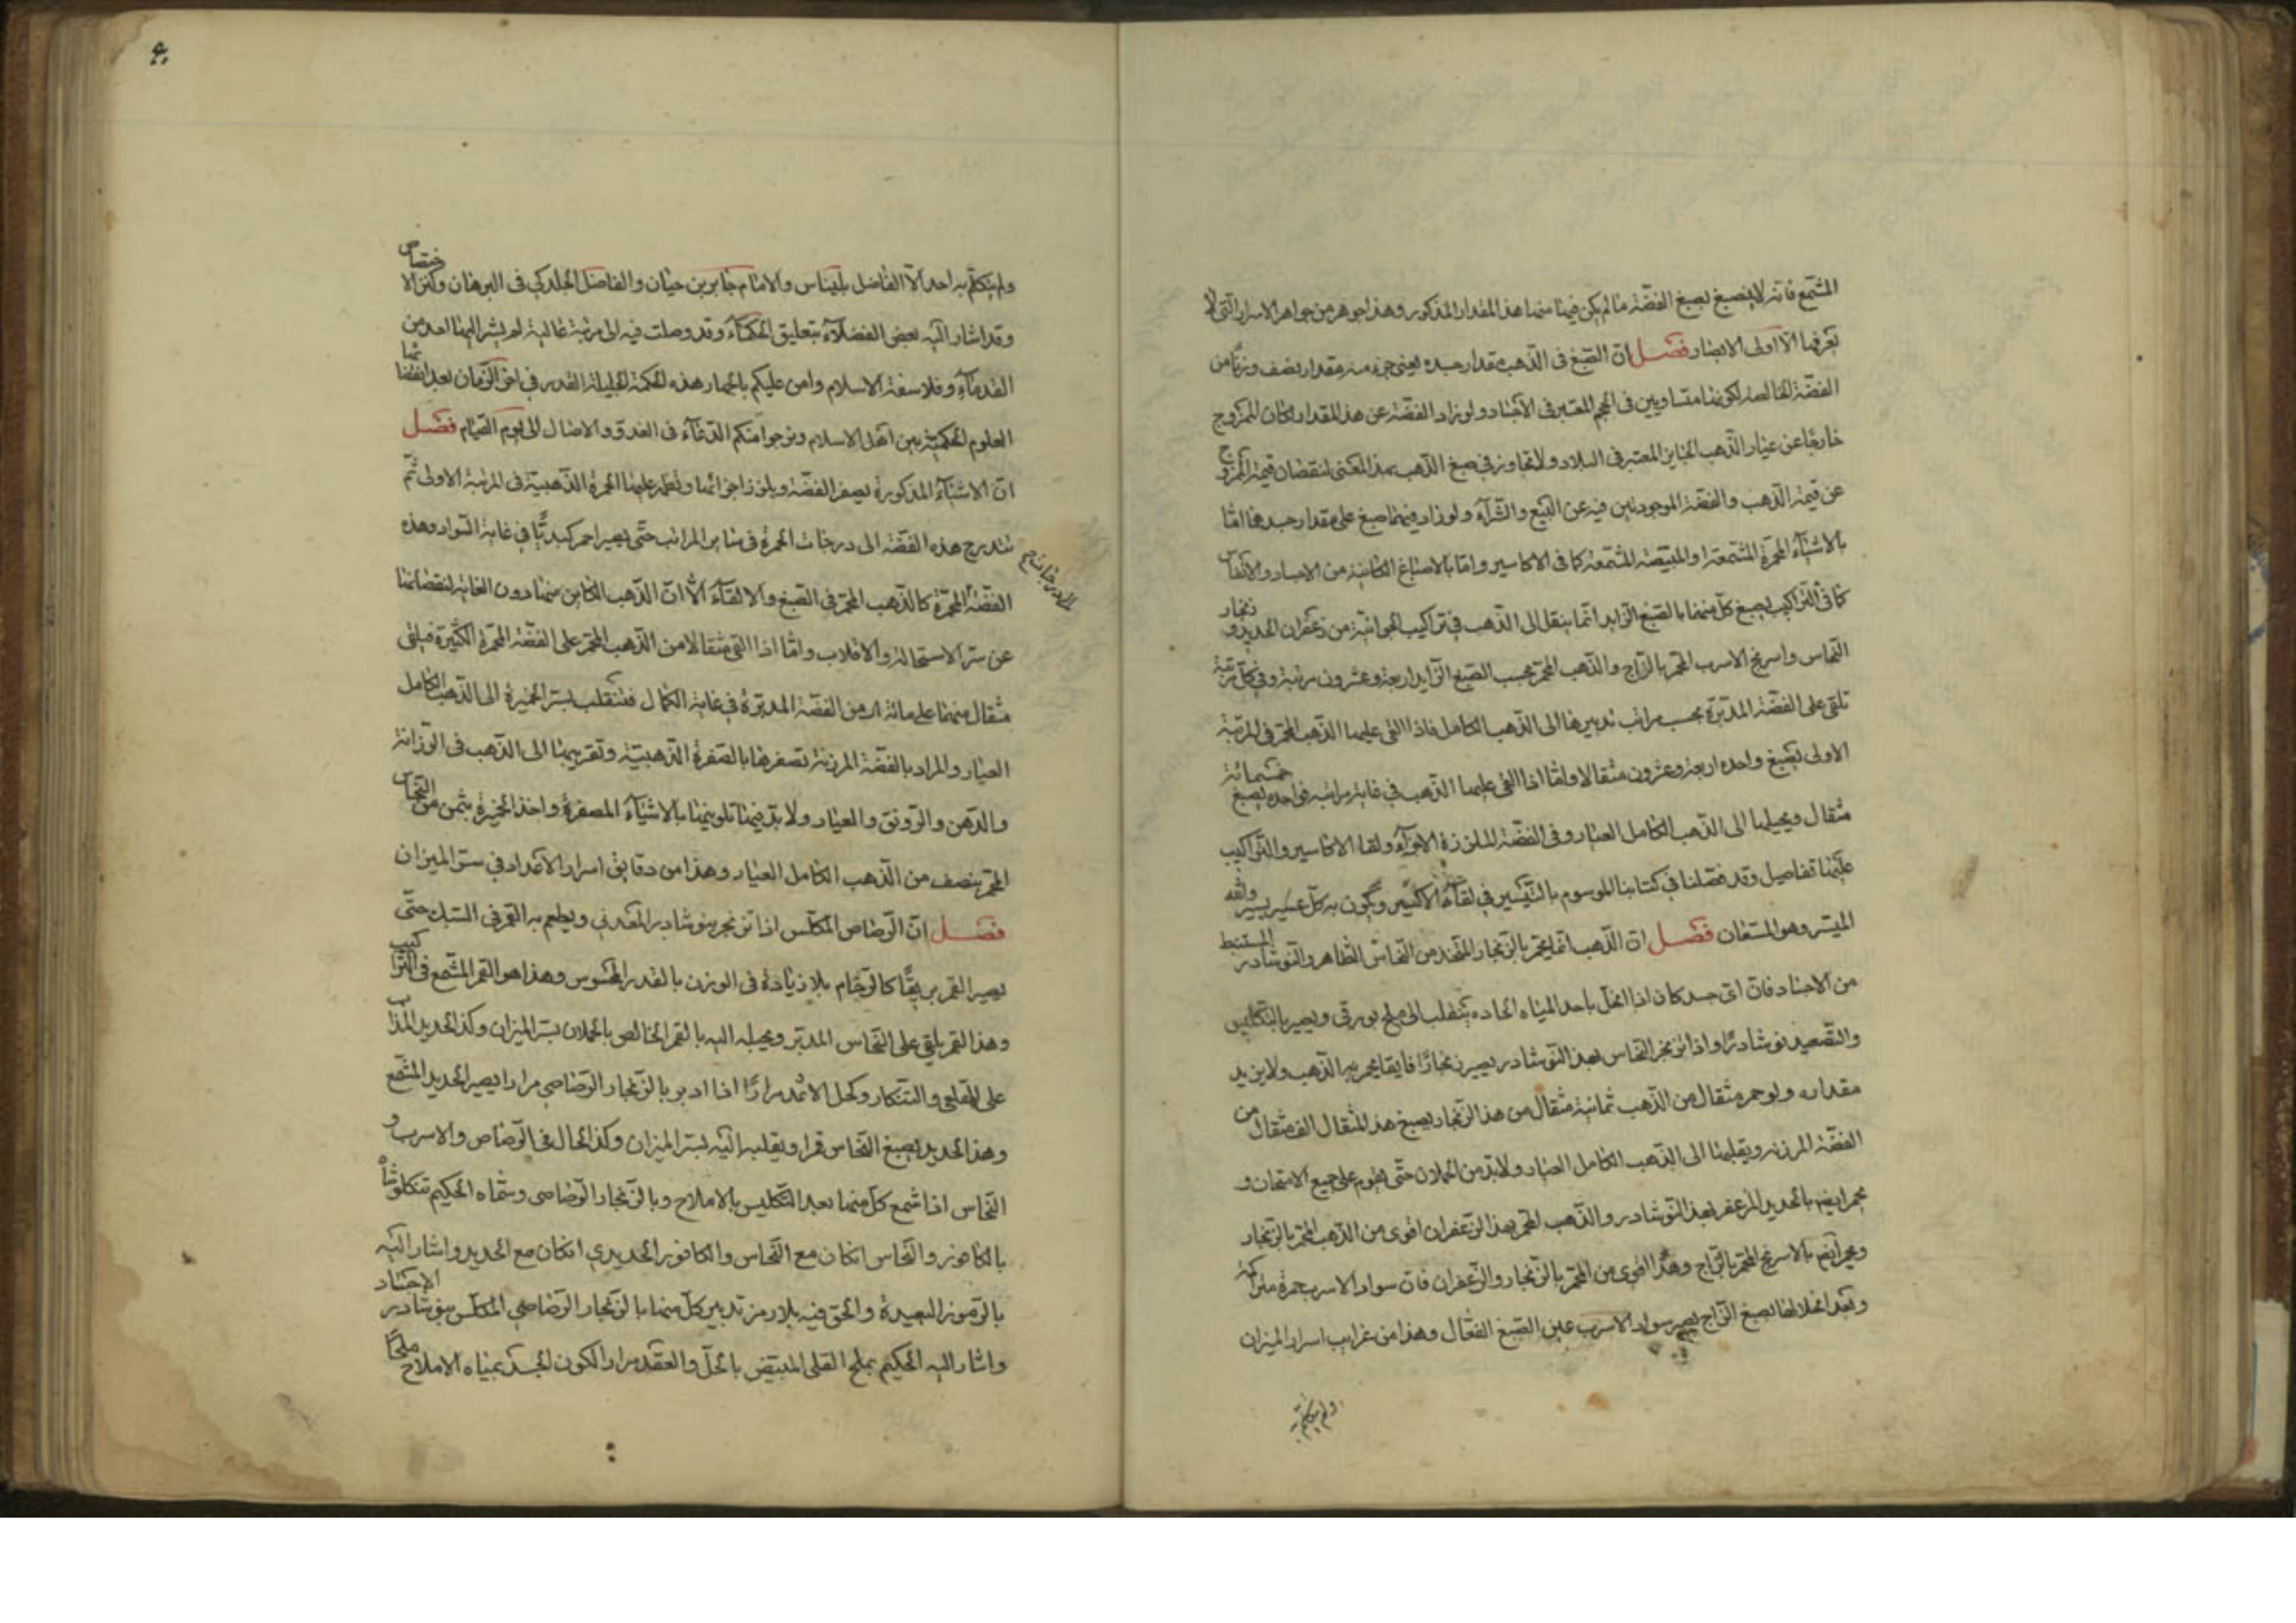 المشمع فانه لا ينصبغ بصبغ الفضة ما لم يكن فيها منها هذا المقدار المذكور وهذا جوهر من جواهر الاسرار التي لا
يعرفها الا اولى الابصار فصل ان الصبغ فى الذهب مقدار جسده يعنى جزء منه مقدار نصف وزنها من
الفضة الخالصة لكونهما متساويين فى الحجم المعتبر فى الاجساد ولو زاد الفضة عن هذا المقدار لكان الممزوج
خارجا عن عيار الذهب الجايز المعتبر فى البلاد ولا تجاوز فى صبغ الذهب بهذا المعنى لنقصان قيمة الممزوج
عن قيمة الذهب والفضة الموجودتين فيه عن البيع والشرآء ولو زاد فيهما صبغ على مقدار جسدهما اما
بالاشيآء المحمرة المشمعة او المبيضة المشمعة كما فى الاكاسير واما بالاصباغ الكاينة من الاجساد والانفاس
كما فى التراكيب يصبغ كل منهما بالصبغ الزايد انما ينقل الى الذهب فى تراكيب الجوانية من زعفران الحديد وزنجار
النحاس واسرنج الاسرب المحمر بالزاج والذهب المحمر بحسب الصبغ الزايد اربعة وعشرون مرتبة وفى كل مرتبة
تلقى على الفضة المدبرة بحسب مراتب تدبيرها الى الذهب الكامل فاذا القى عليها الذهب المحمر فى المرتبة
الاولى يصبغ واحده اربعة وعشرون مثقالا واما اذا القى عليها الذهب فى غاية مراتبه فواحده يصبغ خمسمائة
مثقال ويحيلها الى الذهب الكامل العيار وفى الفضة الملززة الاجزآء ولقاء الاكاسير والتراكيب
عليها تفاصيل وقد فصلنا فى كتابنا الموسوم بالتيسير فى لقآء الاكسير ويكون به كل عسير يسير والله
الميسر وهو المستعان فصل ان الذهب انما يحمر بالزنجار المتخذ من النحاس الطاهر والنوشادر المستنبط
من الاجساد فان اى جسد كان اذا انحل باحد المياه الحاده ينقلب الى ملح بورقى ويصير بالتكليس
والتصعيد نوشادرا واذا تزنجر النحاس بهذا النوشادر يصير زنجارا فايقا يحمر به الذهب ولا يزيد
مقداره ولو حمر مثقال من الذهب ثمانية مثقال من هذا الزنجار يصبغ هذا المثقال الف مثقال من
الفضة المرزنة ويقلبها الى الذهب الكامل العيار ولا بد من الحملان حتى يقوم على جميع الامتحان و
يحمر ايضا بالحديد المزعفر بهذا النوشادر والذهب المحمر بهذا الزعفران اقوى من الذهب المحمر بالزنجار
ويحمر ايضا بالاسرنج المحمر بالزاج وهذا اقوى من المحمر بالزنجار والزعفران فان سواد الاسرب حمرة متراكمة
وبعد انحلالها بصبغ الزاج يصير سواد الاسرب عين الصبغ الفعال وهذا من غرايب اسرار الميزان
ولم يتكلم به
۴۰
ولم يتكلم به احد الا الفاضل بليناس والامام جابر بن حيان والفاضل الجلدكى فى البرهان وكنز الاختصاص
وقد اشار اليه بعض الفضلآء بتعليق الحكمآء وقد وصلت فيه الى مرتبة عالية لم يشر اليها احد من
القدمآء وفلاسفة الاسلام وامن عليكم باظهار هذه الحكمة الجليلة القدر فى اخر الزمان بعد انقضائها
العلوم الحكمية بين اهل الاسلام ونرجوا منكم الدعآء فى الغدو والاصال الى يوم القيام فصل
ان الاشيآء المذكورة يصفر الفضة ويلزز اجزائها وتظهر عليها الحمرة الذهبية فى المرتبة الاولى ثم
تندرج هذه الفضة الى درجات الحمرة فى ساير المراتب حتى يصير احمر كبديا فى غاية السواد وهذه
الدرجات صح
الفضة المحمرة كالذهب المحمر فى الصبغ والالقآء الا ان الذهب الكاين منها دون الغاية لنقصانها
عن سر الاستحالة والانقلاب واما اذا القى مثقالا من الذهب المحمر على الفضة المحمرة الكثيرة فيلقى
مثقال منهما على مائة من الفضة المدبرة فى غاية الكمال فتنقلب بسر الخميرة الى الذهب الكامل
العيار والمراد بالفضة المرزنة تصفرها بالصفرة الذهبية وتقريبها الى الذهب فى الوزانة
والدهن والرونق والعيار ولا بد فيها تلوينها بالاشيآء المصفرة واخذ الخميرة بثمن من النحاس
المحمر بنصف من الذهب الكامل العيار وهذا من دقايق اسرار الاعداد فى سر الميزان
فصل ان الرصاص المكلس اذا تزنجر بنوشادر المعدنى ويطعم به القمر فى السبك حتى
يصير القمر بريقا كالرخام بلا زيادة فى الوزن بالقدر المحسوس وهذا هو القمر المشمع فى التراكيب
وهذا القمر يلقى على النحاس المدبر ويحيله اليه بالقمر الخالص بالحملان بسر الميزان وكذا الحديد المذاب
على القلعى والتنكار وكحل الاثمد مرارا اذا ادبر بالزنجار الرصاصى مرارا يصير الحديد المشمع
وهذا الحديد يصبغ النحاس قمرا ويقلبه اليه بسر الميزان وكذا الحال فى الرصاص والاسرب و
النحاس اذا شمع كل منهما بعد التكليس بالاملاح وبالزنجار الرصاصى وسماه الحكيم تنكلوشا
بالكافور والنحاس انكان مع النحاس والكافور الحديدى انكان مع الحديد واشار اليه
بالرموز البعيدة والحق فيه بلا رمز تدبير كل منها بالزنجار الرصاصى المكلس بنوشادر الاجساد
واشار اليه الحكيم بملح القلى المبيض بالحل والعقد مرارا لكون الجسد بمياه الاملاح ملحا